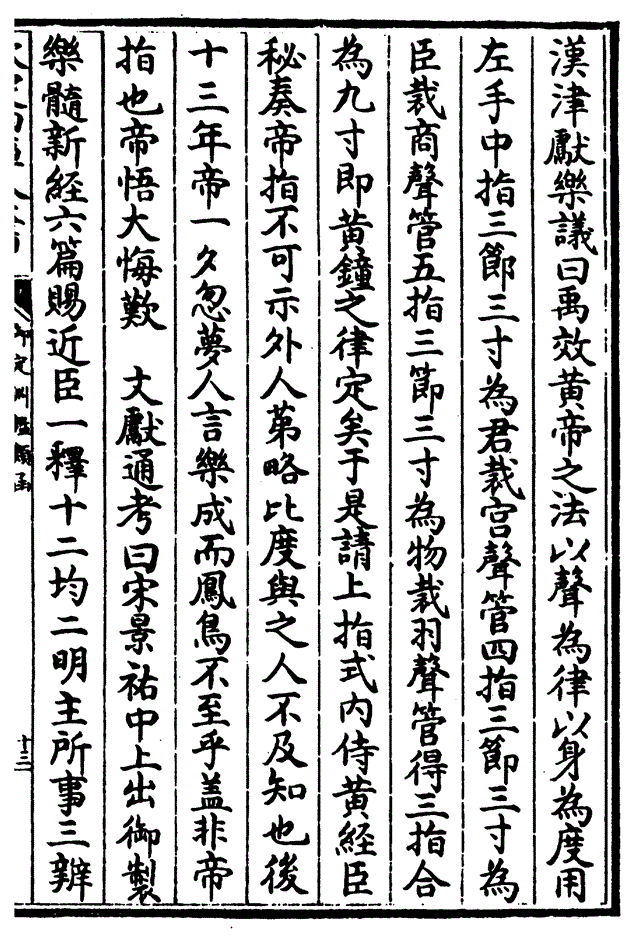 漢津獻樂議曰禹效黄帝之法以聲為律以身為度用
左手中指三節三寸為君裁宫聲管四指三節三寸為
臣裁商聲管五指三節三寸為物裁羽聲管得三指合
為九寸即黄鐘之律定矣于是請上指式内侍黄經臣
秘奏帝指不可示外人苐略比度與之人不及知也後
十三年帝一夕忽夢人言樂成而鳳鳥不至乎盖非帝
指也帝悟大悔歎　文獻通考曰宋景祐中上出御製
樂髓新經六篇賜近臣一釋十二均二明主所事三辨
御定淵鑑類函
十三